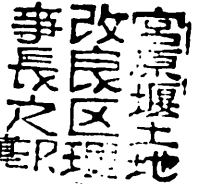 宮原堰土地
改良区理
事長之印